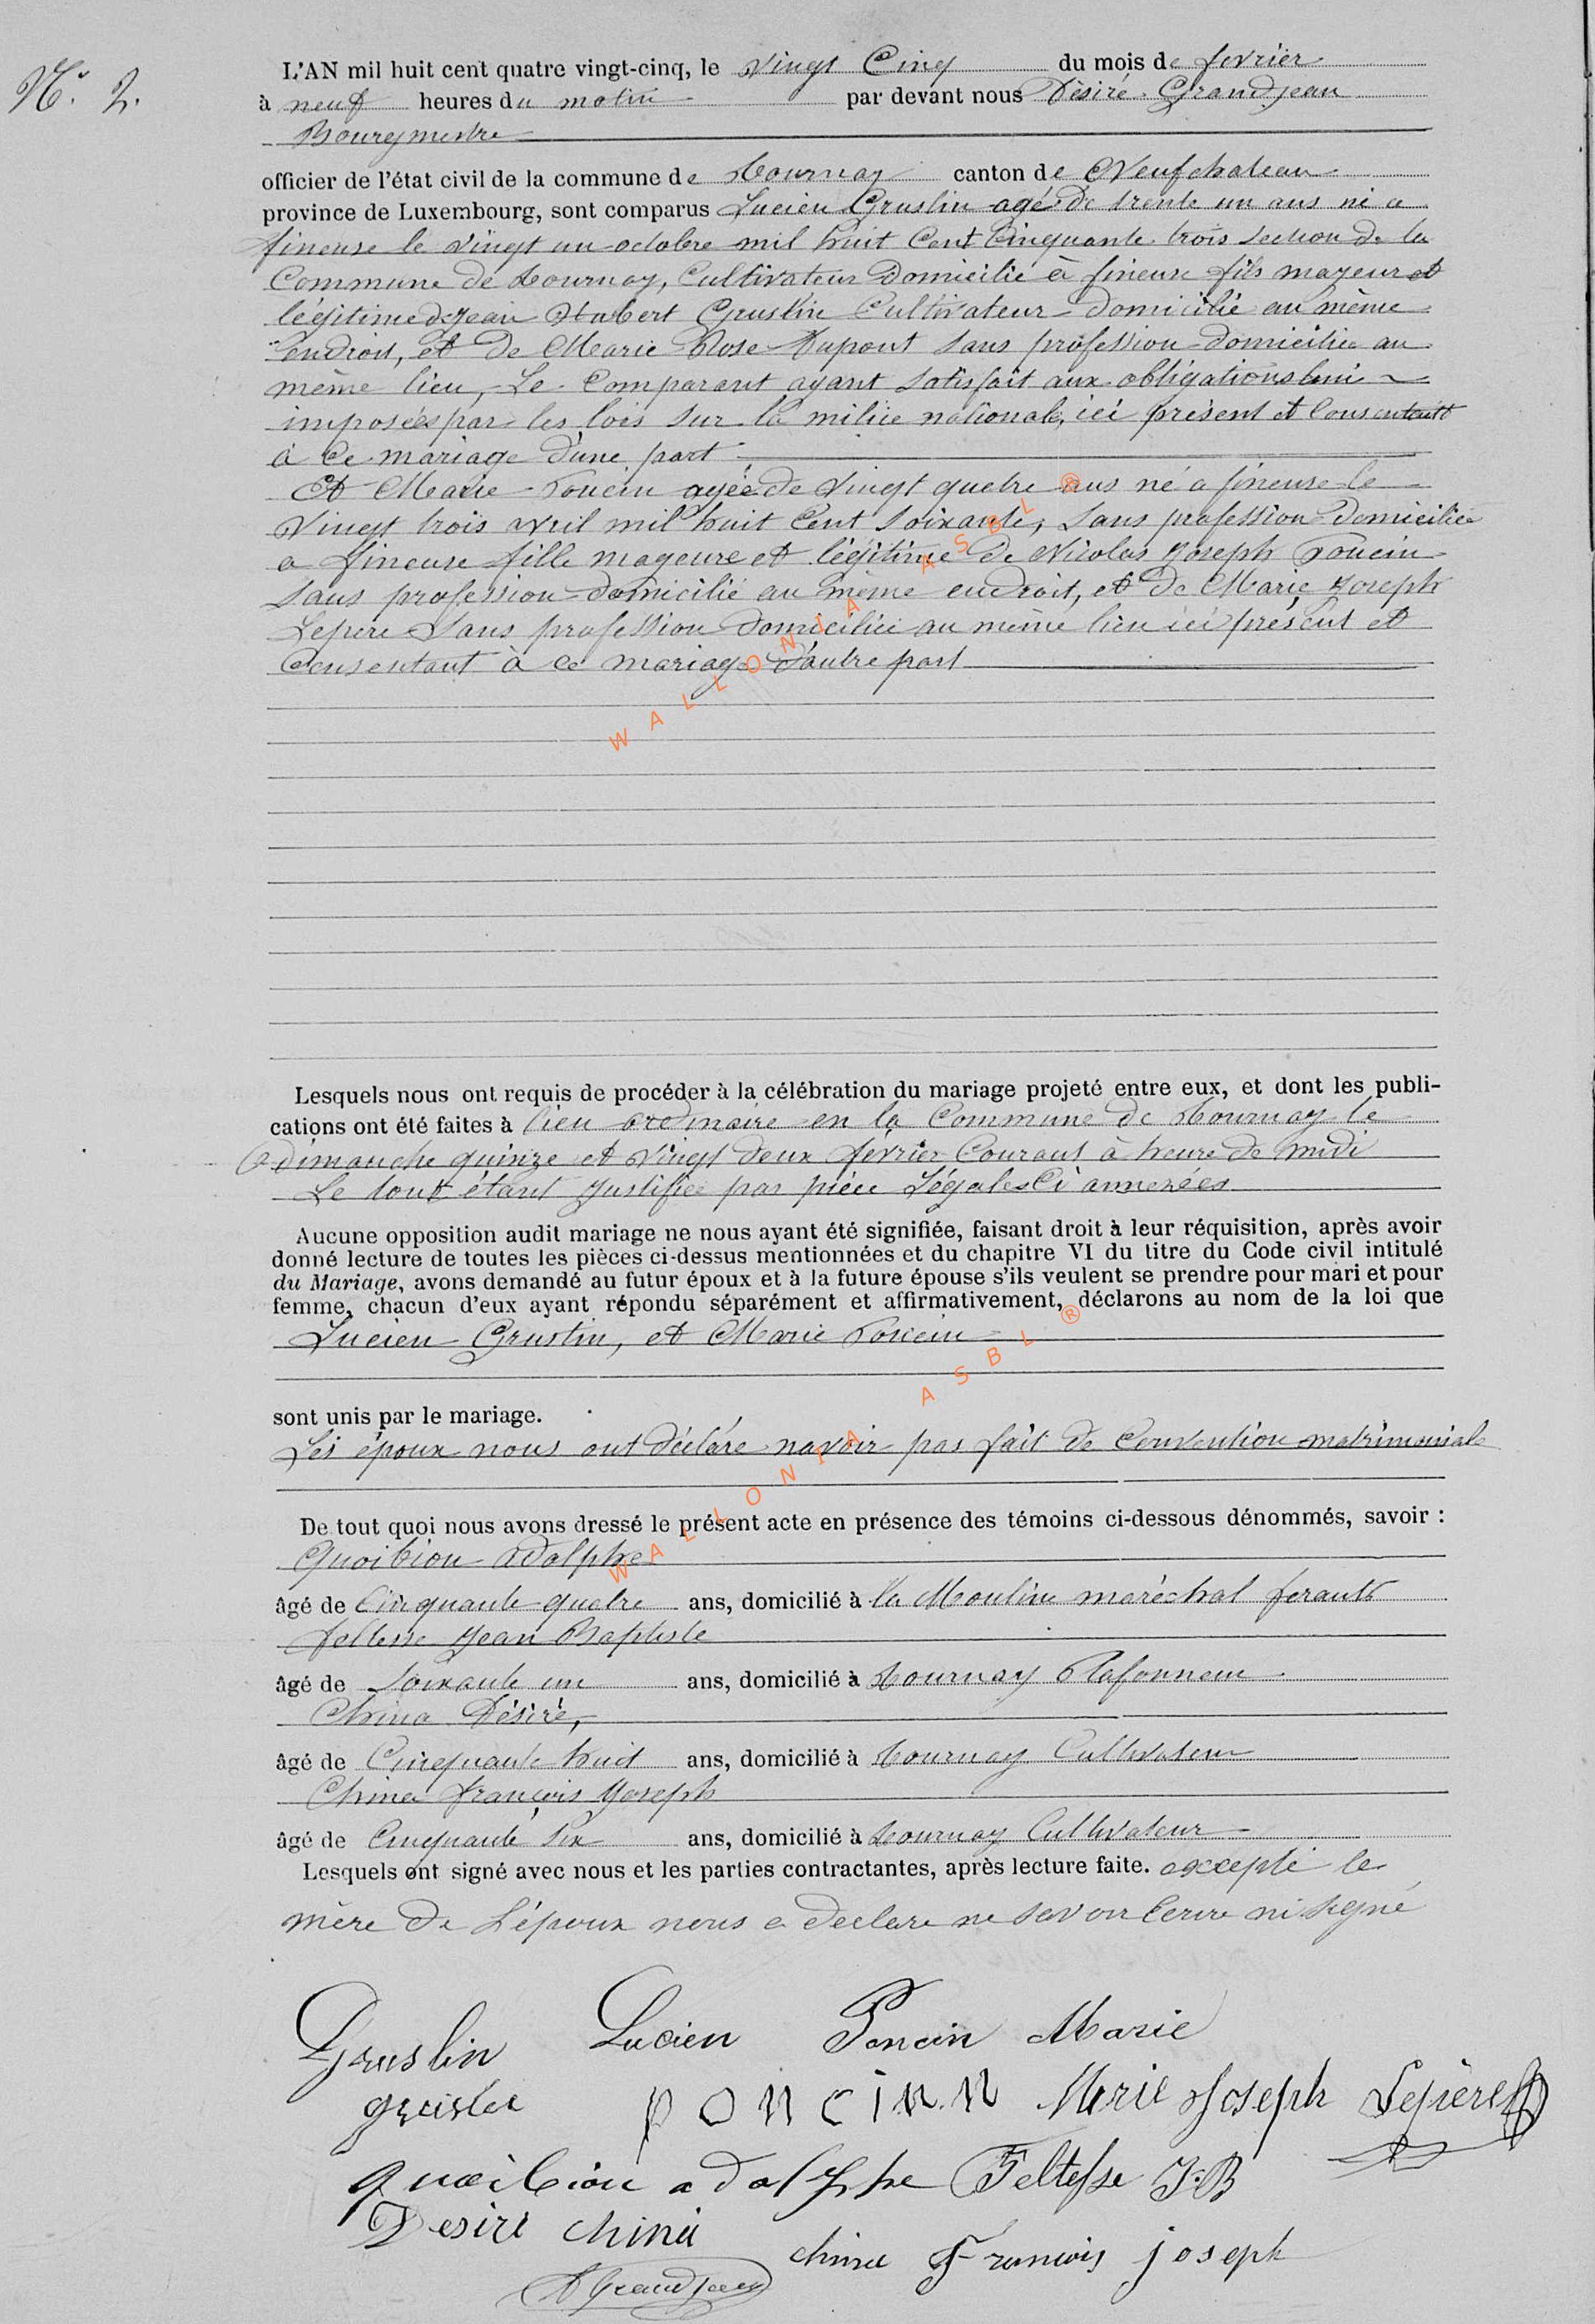 N° 2.
L'AN mil huit cent quatre vingt-cinq, le vingt Cinq du mois de fevrier
à neuf heures du matin par devant nous Désiré Grandjean
Bourgmestre
officier de l'état civil de la commune de Tournay canton de Neufchateau
province de Luxembourg, sont comparus Lucien Gruslin agé de trente un ans né a
fineuse le vingt un octobre mil huit Cent Cinquante trois section de la
Commune de Tournay, Cultivateur Domicilié à fineuse fils mageur et
légitime de Jean Hubert Gruslin Cultivateur domicilié au même
endroit, et de Marie Rose Dupont sans profession domiciliée au
même lieu, Le Comparant ayant satisfait aux obligations lui
imposées par les lois sur la milice nationale, ici présent et Consentant
à ce mariage d'une part
Et Marie Poncin agée de vingt quatre ans né a fineuse le
vingt trois avril mil huit Cent soixante, sans profession domiciliée
a fineuse fille mageure et légitime de Nicolas Joseph Poncin
sans profession domicilié au même endroit, et de Marie Joseph
Lepère sans profession domiciliée au même lieu ici présent et
Consentant à ce mariage d'autre part
WALLONIA ASBL ®
Lesquels nous ont requis de procéder à la célébration du mariage projeté entre eux, et dont les publi-
cations ont été faites à lieu ordinaire en la Commune de Tournay le
dimanche quinze et vingt deux février Courant à heure de midi
Le tout étant justifiée par pièce Légales Ci annexées
Aucune opposition audit mariage ne nous ayant été signifiée, faisant droit à leur réquisition, après avoir
donné lecture de toutes les pièces ci-dessus mentionnées et du chapitre VI du titre du Code civil intitulé
du Mariage, avons demandé au futur époux et à la future épouse s'ils veulent se prendre pour mari et pour
femme, chacun d'eux ayant répondu séparément et affirmativement, déclarons au nom de la loi que
Lucien Gruslin, et Marie Poncin
sont unis par le mariage.
Les époux nous ont déclare navoir pas fait de Convention matrimoniale
WALLONIA ASBL ®
De tout quoi nous avons dressé le présent acte en présence des témoins ci-dessous dénommés, savoir :
Quoibion Adolphe
âgé de Cinquante quatre ans, domicilié à la Mouline maréchal ferant
feltesse Jean Baptiste
âgé de Soixante un ans, domicilié à Tournay Plafonneur
China Désiré,
âgé de Cinquante huit ans, domicilié à Tournay Cultivateur
China françois Joseph
âgé de Cinquante six ans, domicilié à Tournay Cultivateur
Lesquels ont signé avec nous et les parties contractantes, après lecture faite. excepté la
mère de L'époux nous a declare ne savoir Ecrire ni signé
Gruslin Lucien Poncin Marie
PONCINN Marie Joseph Lepère
quoibion adolphe Feltesse J-B
Desiré china
china François joseph
D Grandjean